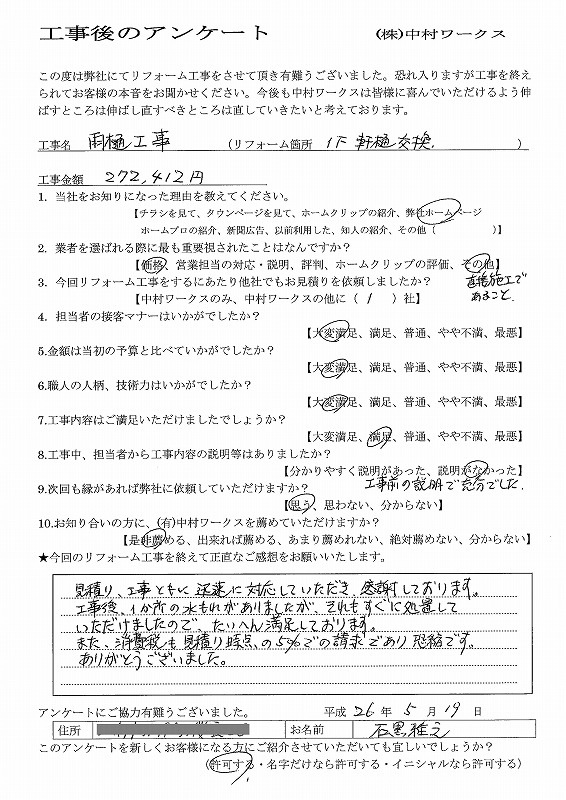 工事後のアンケート (株)中村ワークス
この度は弊社にてリフォーム工事をさせて頂き有難うございました。恐れ入りますが工事を終え
られてお客様の本音をお聞かせください。今後も中村ワークスは皆様に喜んでいただけるよう伸
ばすところは伸ばし直すべきところは直していきたいと考えております。
工事名 雨樋工事 (リフォーム箇所 1F 軒樋交換. )
工事金額 272,412円
1. 当社をお知りになった理由を教えてください。
【チラシを見て、タウンページを見て、ホームクリップの紹介、弊社ホームページ
ホームプロの紹介、新聞広告、以前利用した、知人の紹介、その他 ( )】
2. 業者を選ばれる際に最も重要視されたことはなんですか?
【価格、営業担当の対応・説明、評判、ホームクリップの評価、その他】
直接施工で
あること.
3. 今回リフォーム工事をするにあたり他社でもお見積りを依頼しましたか?
【中村ワークスのみ、中村ワークスの他に ( 1 ) 社】
4. 担当者の接客マナーはいかがでしたか?
【大変満足、満足、普通、やや不満、最悪】
5.金額は当初の予算と比べていかがでしたか?
【大変満足、満足、普通、やや不満、最悪】
6.職人の人柄、技術力はいかがでしたか?
【大変満足、満足、普通、やや不満、最悪】
7.工事内容はご満足いただけましたでしょうか?
【大変満足、満足、普通、やや不満、最悪】
8.工事中、担当者から工事内容の説明等はありましたか?
【分かりやすく説明があった、説明がなかった】
工事前の説明で充分でした.
9.次回も縁があれば弊社に依頼していただけますか?
【思う、思わない、分からない】
10.お知り合いの方に、(有)中村ワークスを薦めていただけますか?
【是非薦める、出来れば薦める、あまり薦めれない、絶対薦めない、分からない】
★今回のリフォーム工事を終えて正直なご感想をお願いいたします。
見積り、工事ともに迅速に対応していただき、感謝しております。
工事後、1か所の水もれがありましたが、それもすぐに処置して
いただけましたので、たいへん満足しております。
また、消費税も見積り時点の5%での請求であり恐縮です。
ありがとうございました。
アンケートにご協力有難うございました。 平成 26 年 5 月 19 日
住所 お名前 石黒雅之
このアンケートを新しくお客様になる方にご紹介させていただいても宜しいでしょうか?
(許可する・名字だけなら許可する・イニシャルなら許可する)